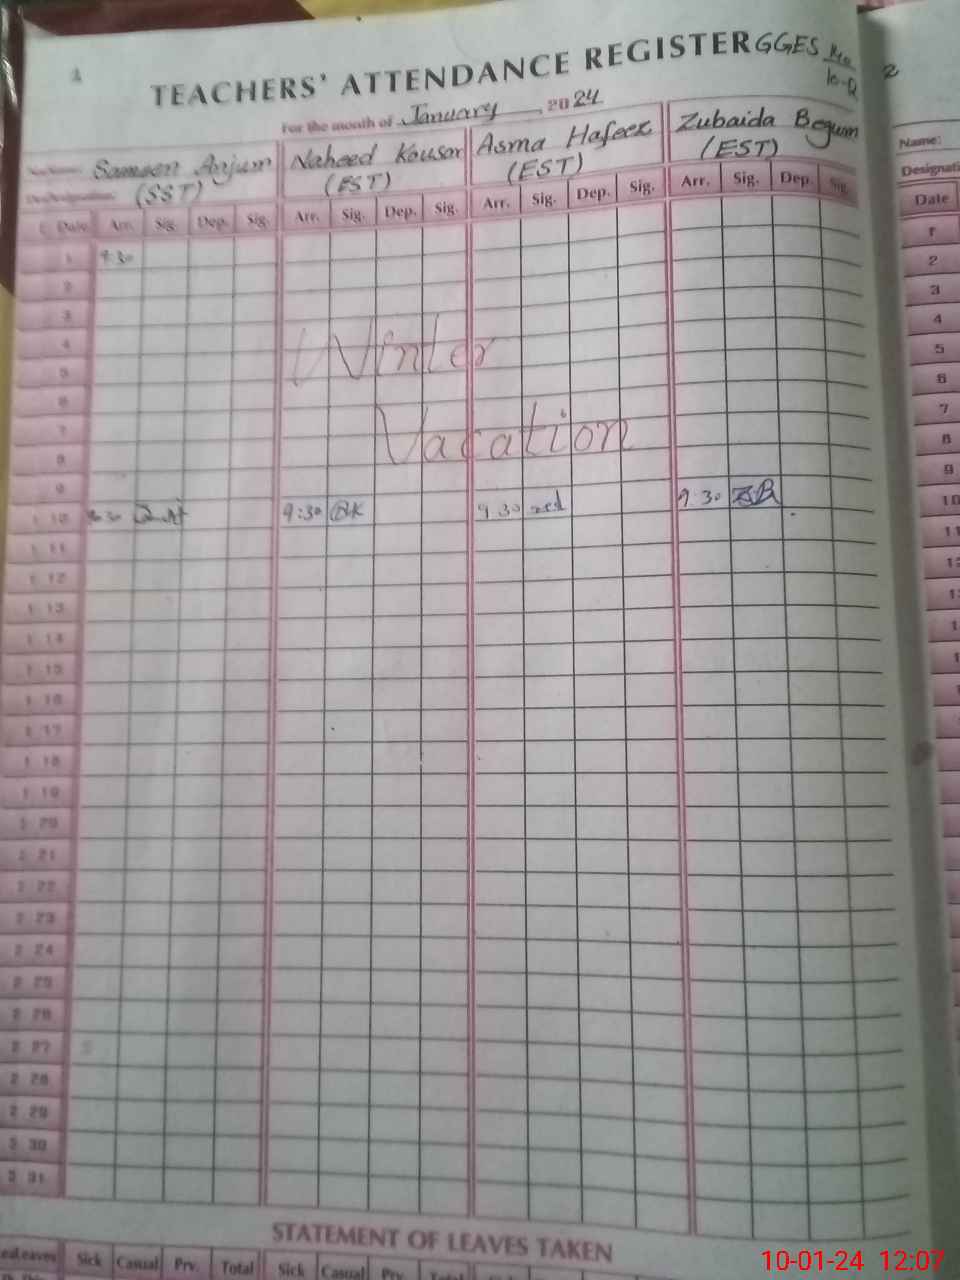 1
TEACHERS' ATTENDANCE REGISTER GGES
2
For the month of January 2024
Name: Sameen Anjum Naheed Kousar Asma Hafeez Zubaida Begum
(SST) (EST) (EST) (EST)
Date Arr. Sig. Dep. Sig. Arr. Sig. Dep. Sig. Arr. Sig. Dep. Sig. Arr. Sig. Dep. Sig.
1 9:30
2
3
4
5
6
7
8
9
Winter
Vacation
10 9:30 9:30 9:30 9:30
11
12
13
14
15
16
17
18
19
20
21
22
23
24
25
26
27
28
29
30
31
STATEMENT OF LEAVES TAKEN
Leaves Sick Casual Prv. Total Sick Casual Prv. Total
Name:
Date
1
2
3
4
5
6
7
8
9
10
11
10-01-24 12:07